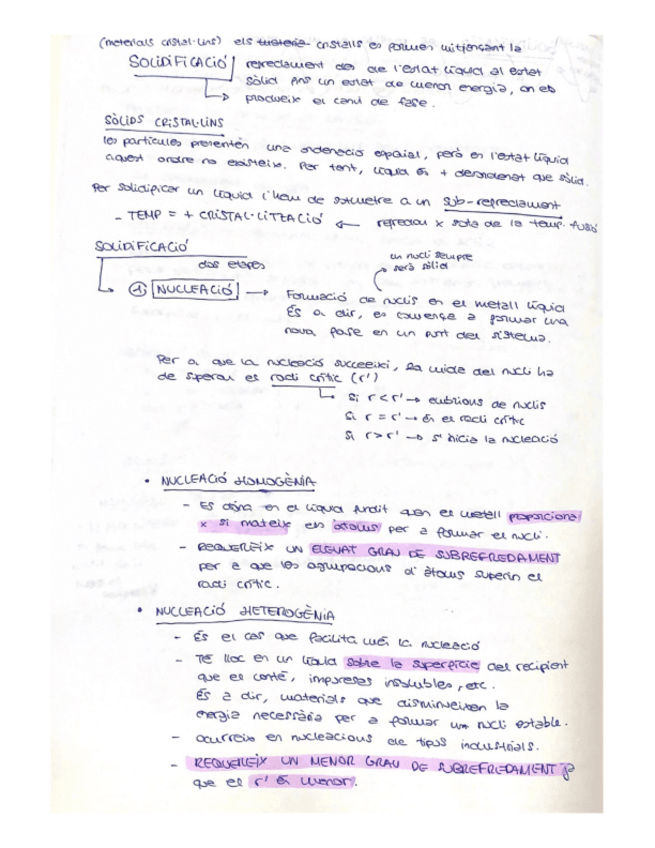 (materials cristal·lins) els cristalls es formen mitjançant la
SOLIDIFICACIÓ refredament des de l'estat líquid al estat
sòlid fins un estat de menor energia, on es
produeix el canvi de fase.
SÒLIDS CRISTAL·LINS
les partícules presenten una ordenació espaial, però en l'estat líquid
aquest ordre no existeix. Per tant, líquid és + desordenat que sòlid.
Per solidificar un líquid l'hem de sotmetre a un sub-refredament
- TEMP = + CRISTAL·LITZACIÓ ← refredar x sota de la temp. fusió
SOLIDIFICACIÓ
dos etapes
un nucli sempre
serà sòlid
① NUCLEACIÓ → Formació de nuclis en el metall líquid
És a dir, es comença a formar una
nova fase en un punt del sistema.
Per a que la nucleació succeeixi, la mida del nucli ha
de superar es radi crític (r')
Si r < r' → embrions de nuclis
Si r = r' → és el radi crític
Si r > r' → s'inicia la nucleació
• NUCLEACIÓ HOMOGÈNIA
- Es dóna en el líquid fundit quan el metall proporciona
x si mateix els àtoms per a formar el nucli.
- REQUEREIX UN ELEVAT GRAU DE SUBREFREDAMENT
per a que les agrupacions d'àtoms superin el
radi crític.
• NUCLEACIÓ HETEROGÈNIA
- És el cas que facilita més la nucleació
- Té lloc en un líquid sobre la superfície del recipient
que el conté, impureses insolubles, etc.
És a dir, materials que disminueixen la
energia necessària per a formar un nucli estable.
- ocurreix en nucleacions de tipus industrials.
- REQUEREIX UN MENOR GRAU DE SUBREFREDAMENT
que el r' és menor.